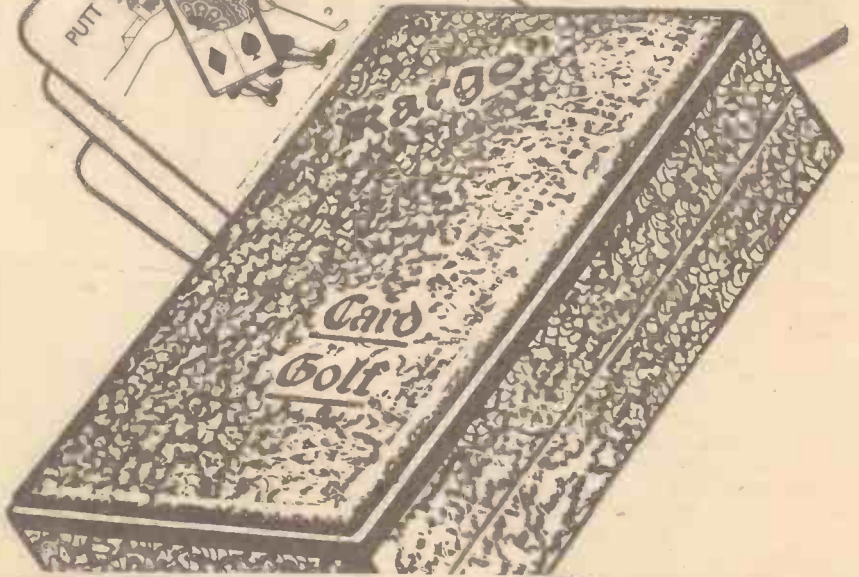 PUTT
Kargo
Card
Golf